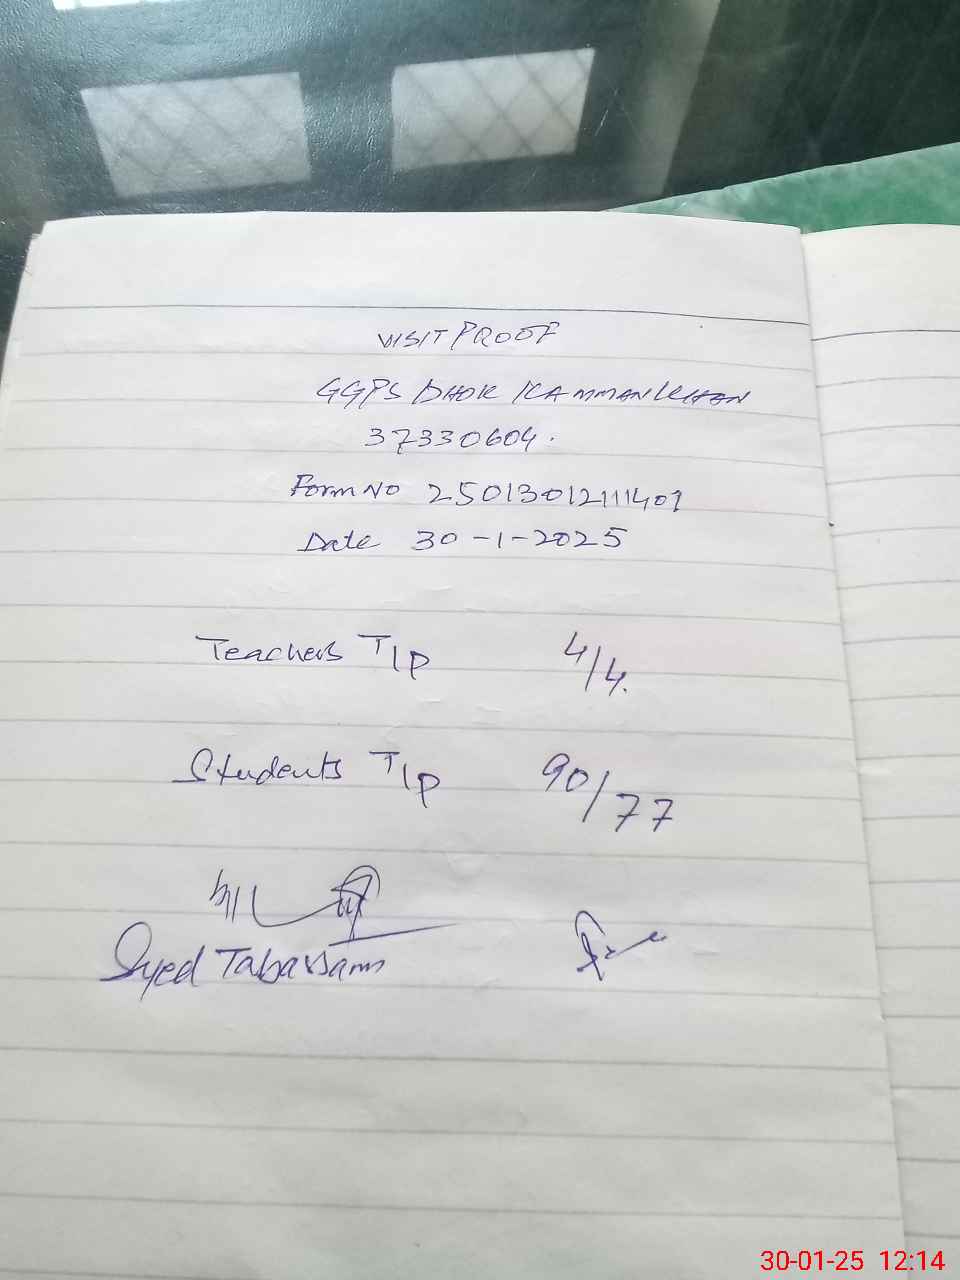 VISIT PROOF
GGPS DHOK KAMMAN KHAN
37330604.
Form No 25013012111401
Date 30-1-2025
Teachers T/P 4/4.
Students T/P 90/77
Syed Tabassam
30-01-25 12:14